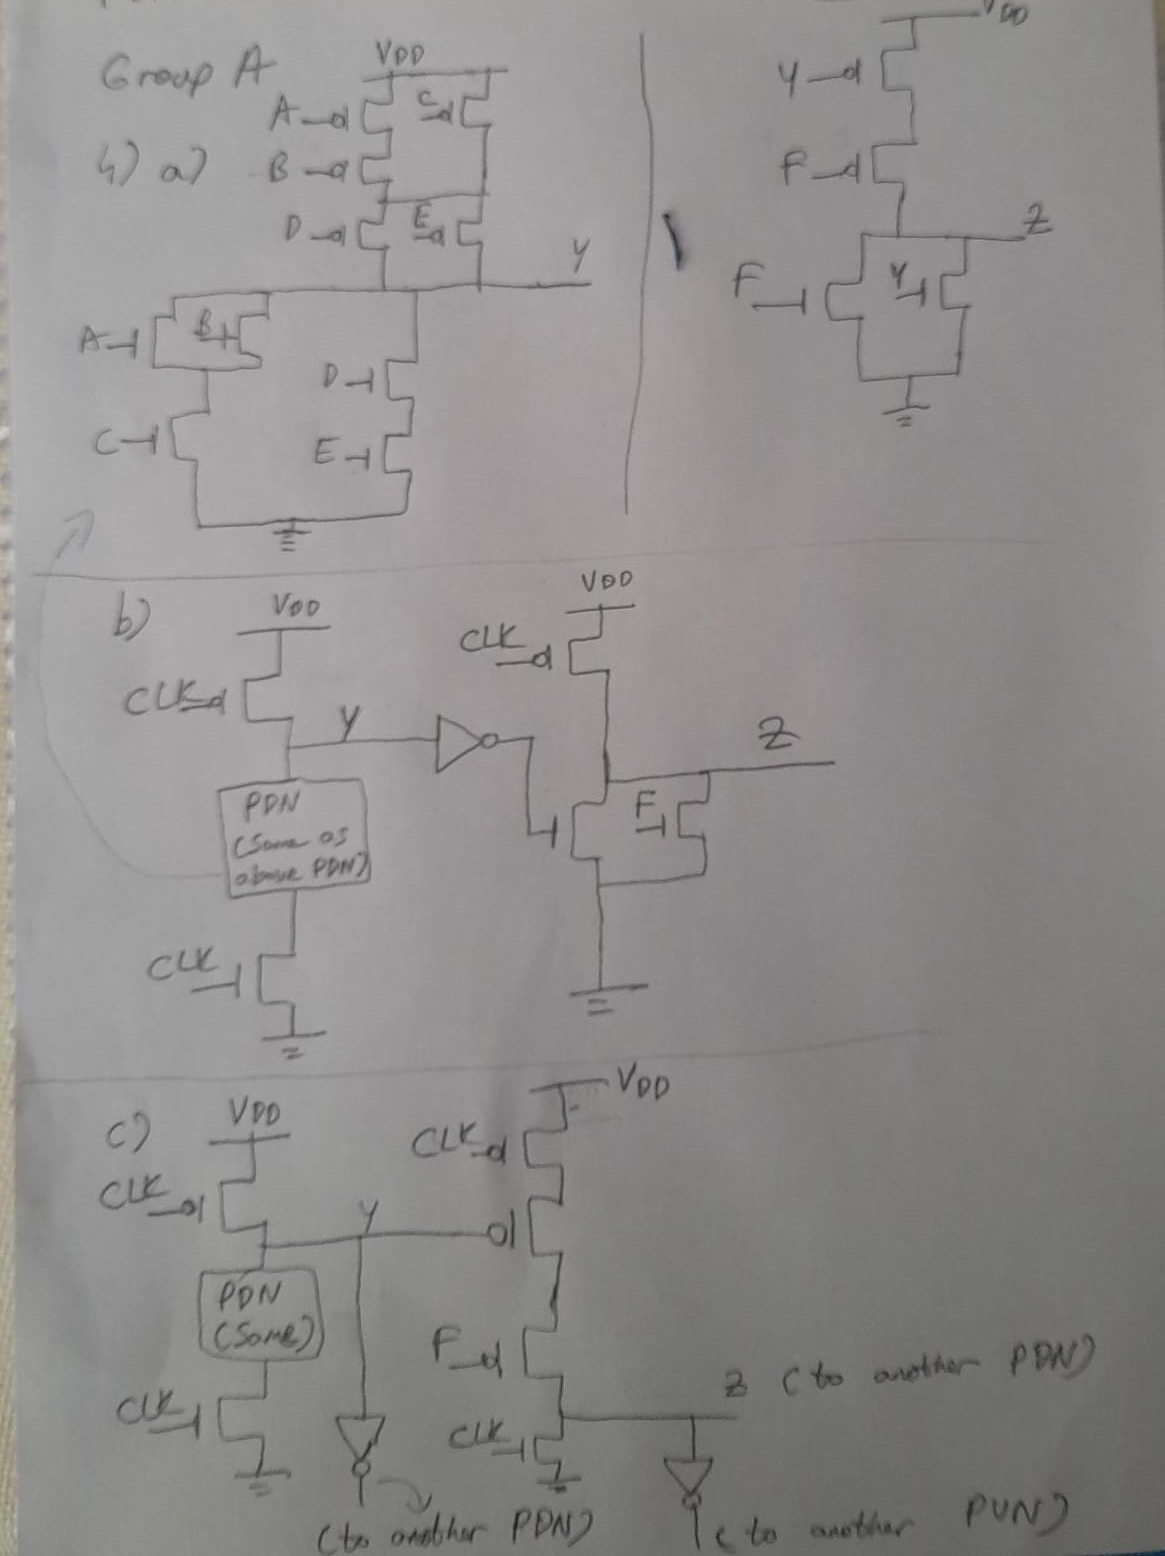 Group A
4) a)
VDD
A
C
B
D
E
Y
A
B
D
C
E
VDD
Y
F
Z
F
Y
b)
VDD
CLK
Y
PDN
(Same as
above PDN)
CLK
VDD
CLK
Z
F
c)
VDD
CLK
Y
PDN
(Same)
CLK
(to another PDN)
VDD
CLK
F
CLK
Z (to another PDN)
(to another PUN)